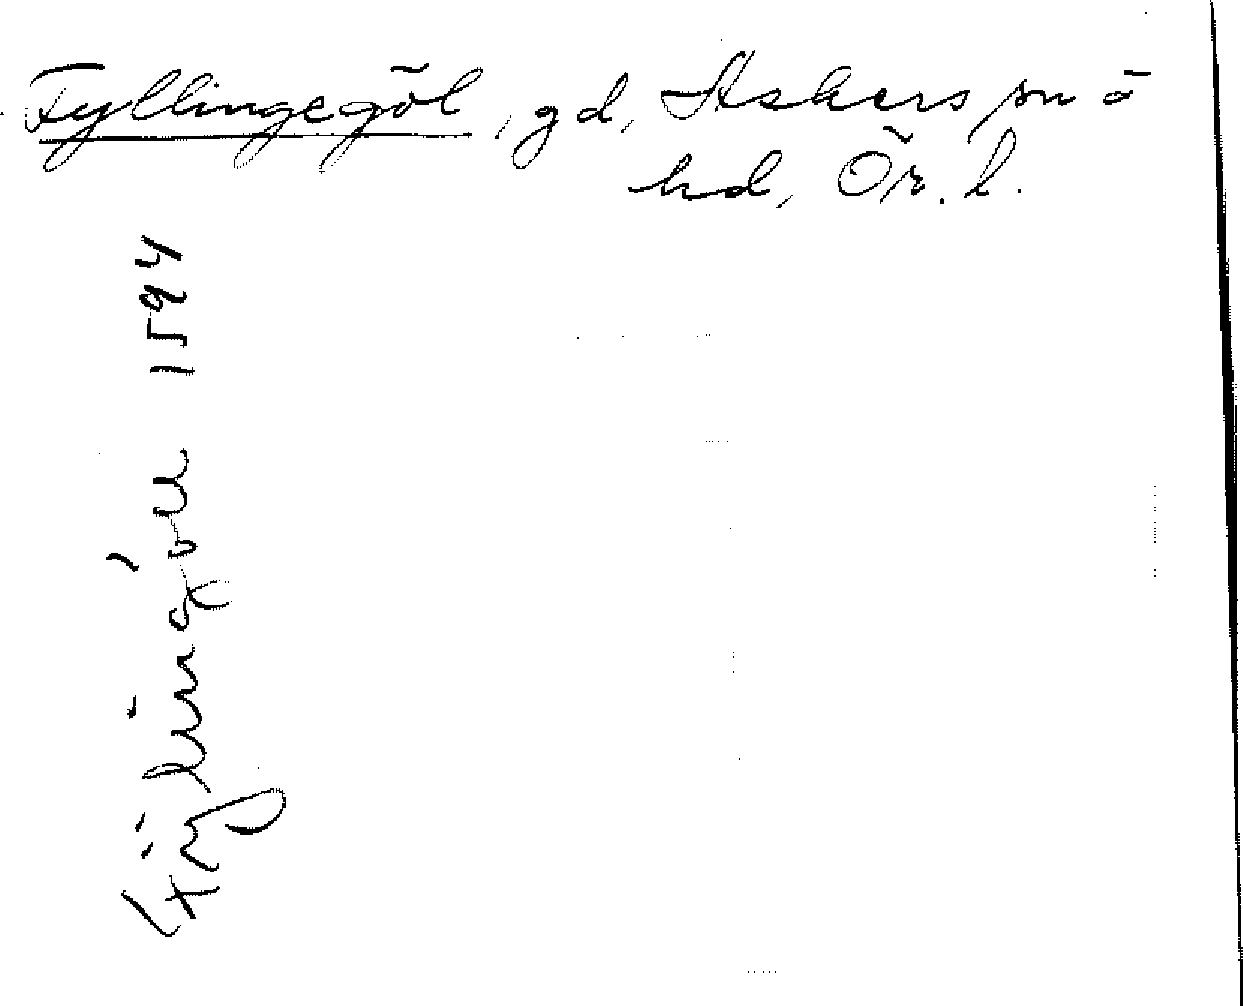 Fyllingegöl, gd, Askers sn o
hd, Ör. l.
Fÿlingöu 1594